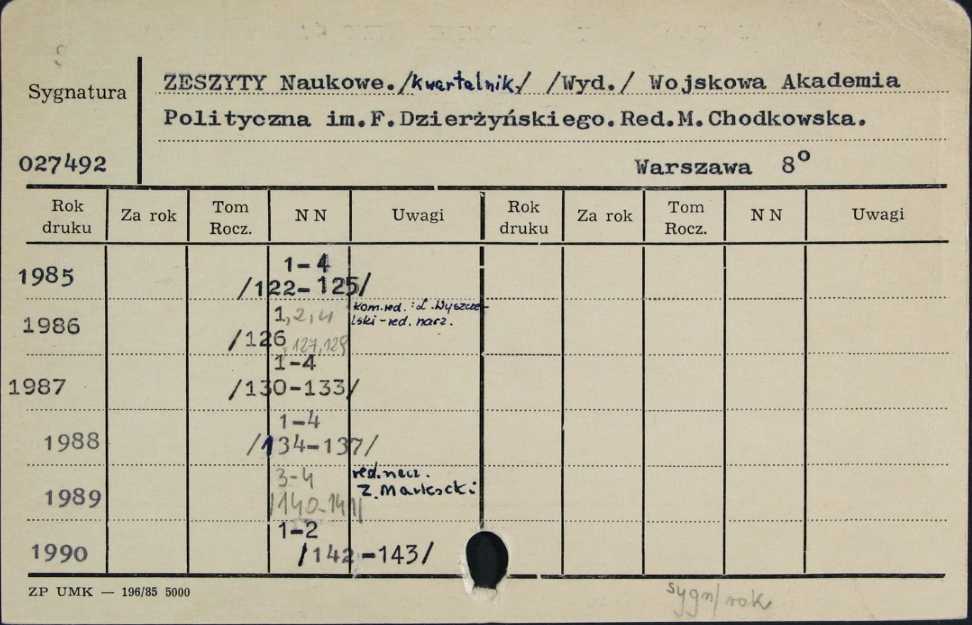 ZESZYTY Naukowe./kwartalnik/ /Wyd./ Wojskowa Akademia
Sygnatura
Polityczna im.F.Dzierżyńskiego.Red.M.Chodkowska.
027492
Warszawa 8º
Rok druku Za rok Tom Rocz. N N Uwagi Rok druku Za rok Tom Rocz. N N Uwagi
1985 1-4
/122-125/
1986 1,2,4 kom.red.: L.Wyszcze-
lski-red. narz.
/126,127,129
1987 1-4
/130-133/
1988 1-4
/134-137/
1989 3-4 red.nacz.
/140-141/ Z.
1990 1-2
/142-143/
ZP UMK — 196/85 5000
sygn/rok